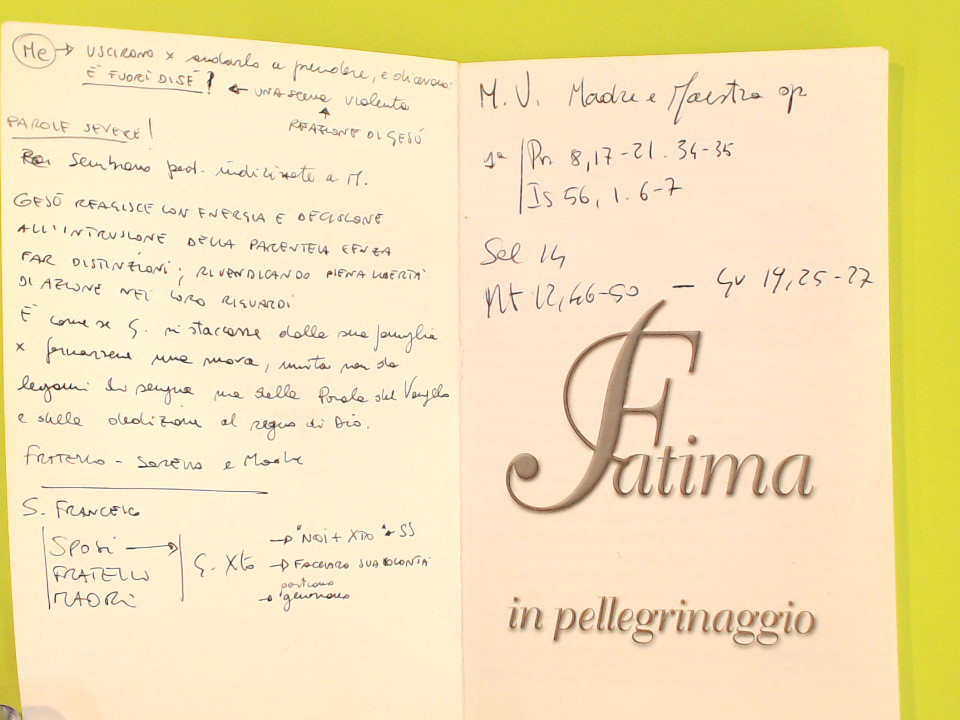 Mc → USCIRONO x andarlo a prendere, e dicevano:
È FUORI DI SÉ! ← UNA scena violenta
↑
REAZIONE DI GESÙ
PAROLE SEVERE!
Sembrano part. indirizzate a M.
GESÙ REAGISCE CON ENERGIA E DECISIONE
ALL'INTRUSIONE DELLA PARENTELA SENZA
FAR DISTINZIONI; RIVENDICANDO PIENA LIBERTÀ
DI AZIONE NEI LORO RIGUARDI
È come se G. si staccasse dalla sua famiglia
x formarsene una nuova, unita non da
legami di sangue ma dalla Parola del Vangelo
e dalla dedizione al regno di Dio.
FRATELLO - SORELLA e Madre
S. FRANCESCO
SPOSI → G. Xto → "NOI + XTO" SS
FRATELLI → FACCIAMO SUA VOLONTÀ
MADRI → portiamo
generiamo
M. V. Madre e Maestra sp
1ª Pr 8,17-21. 34-35
Is 56, 1. 6-7
Sal 14
Mt 12,46-50 — Gv 19,25-27
Fatima
in pellegrinaggio